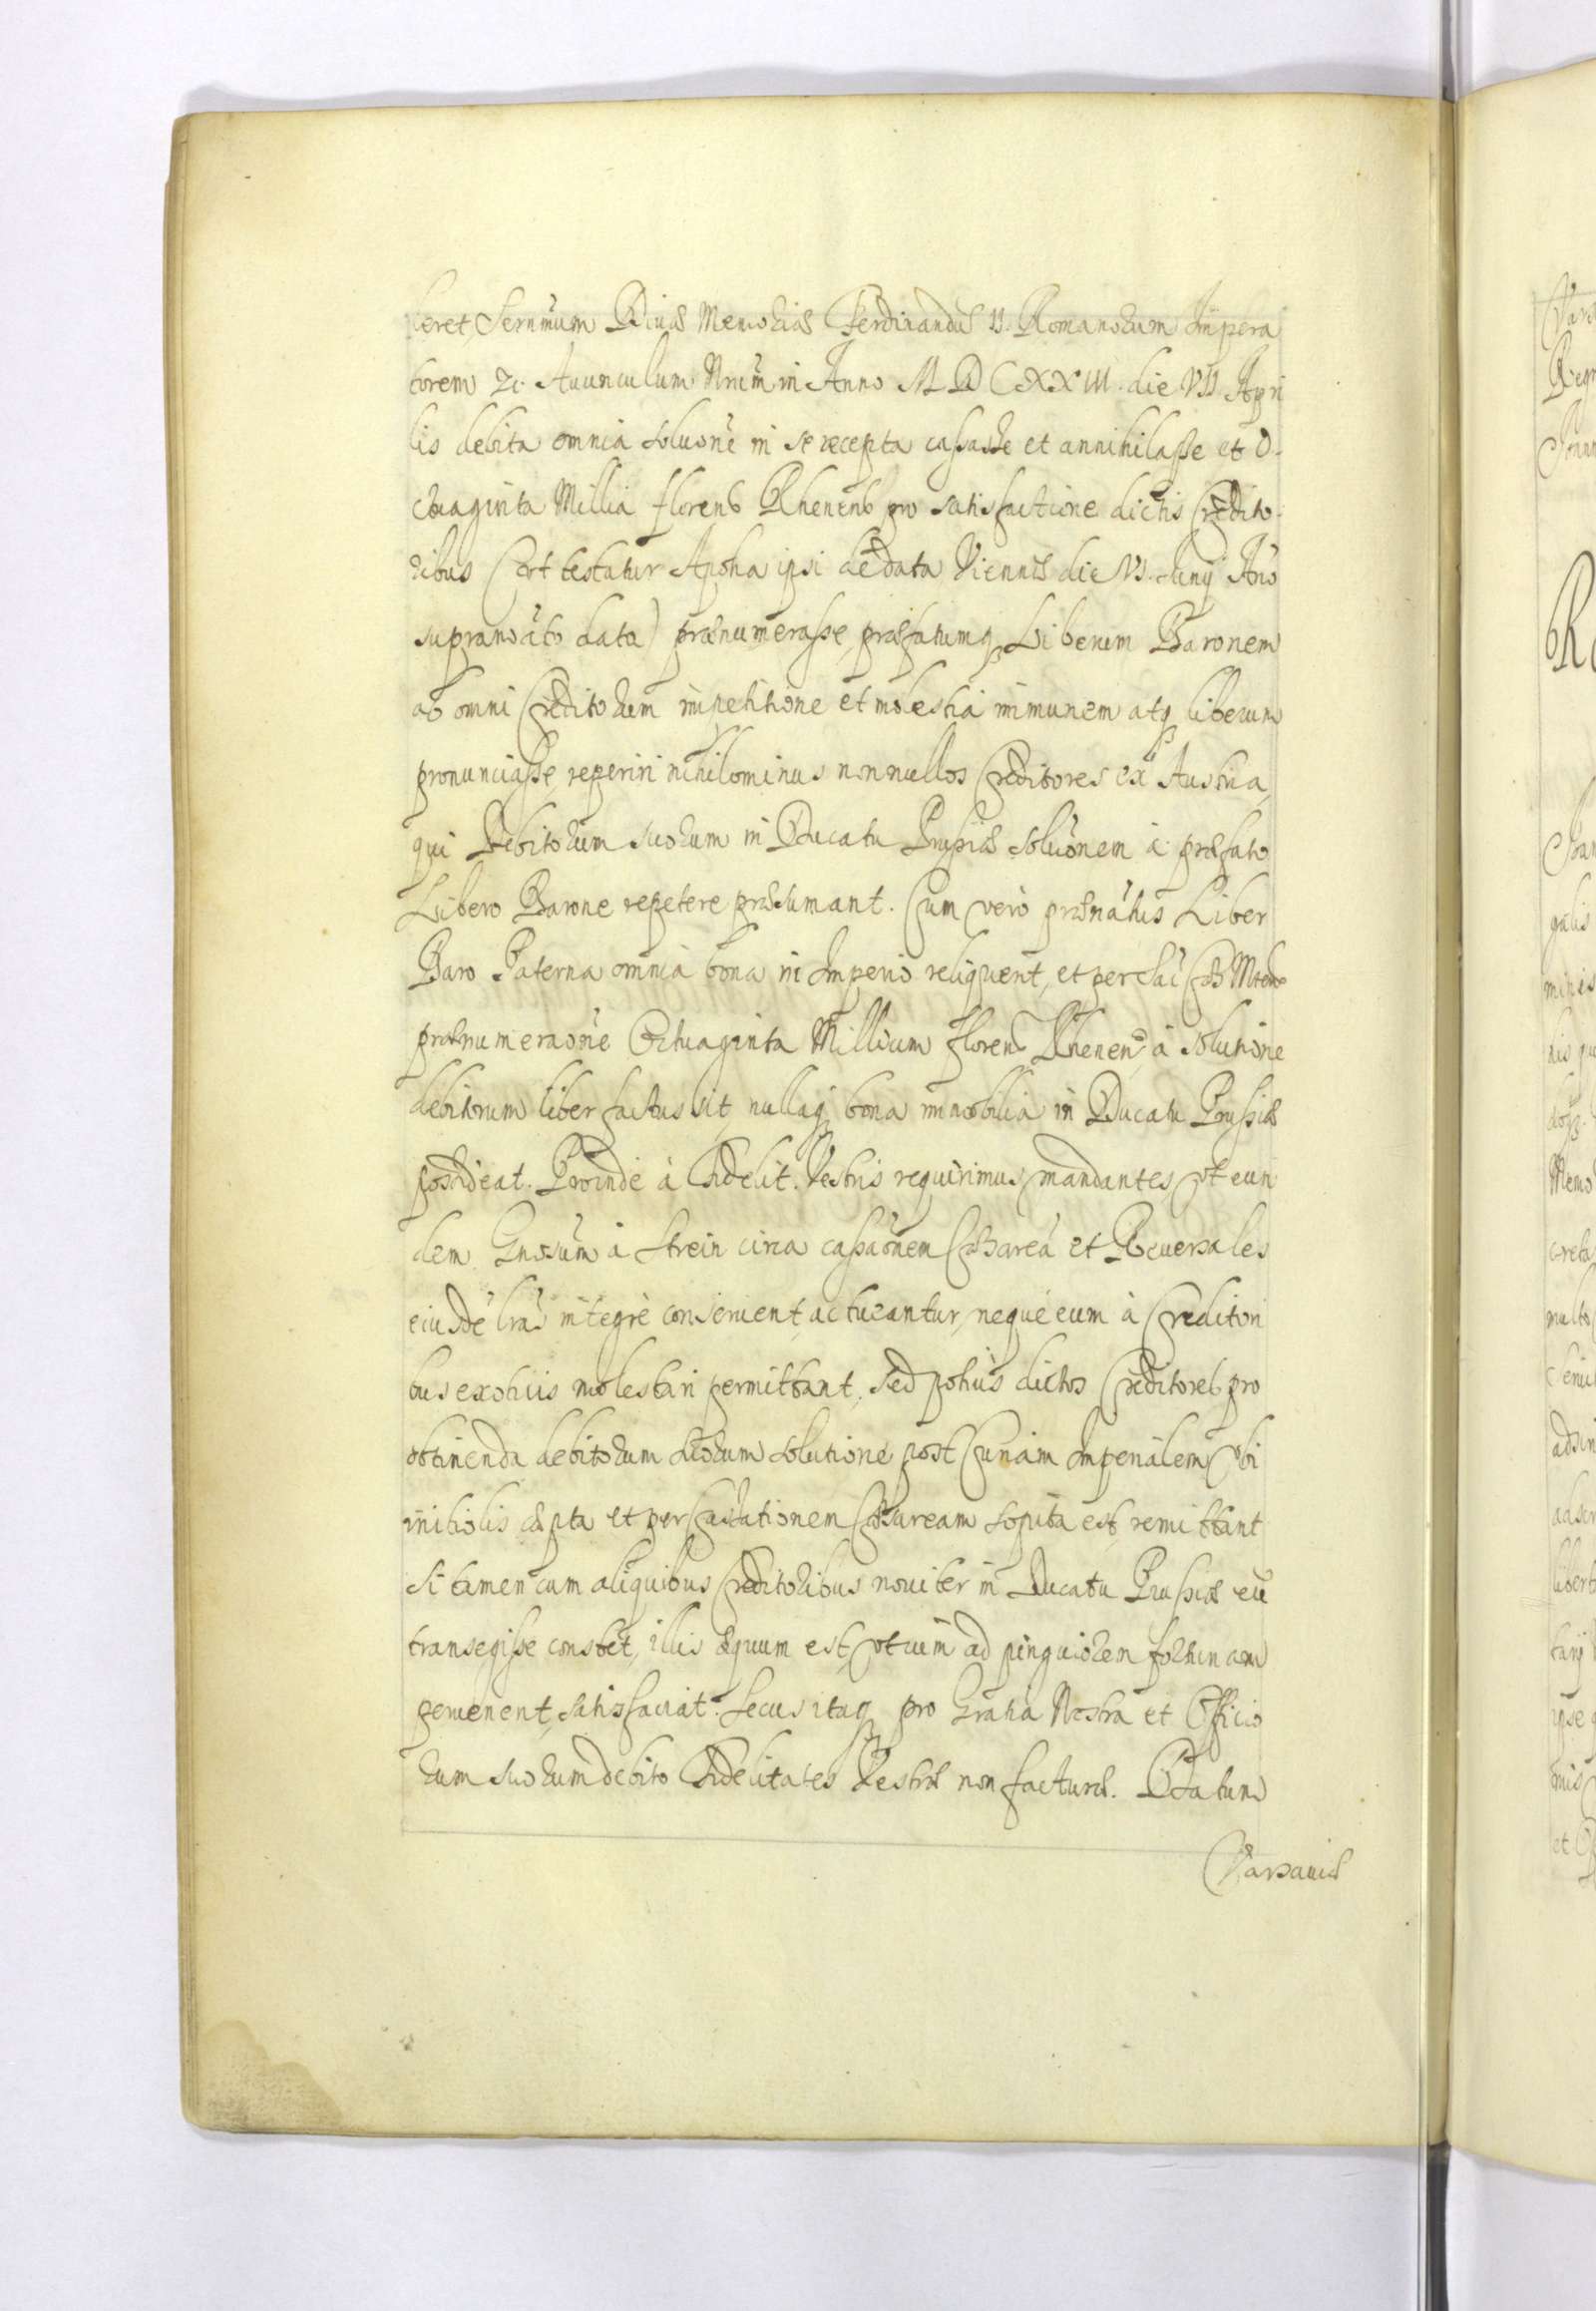 beret, Sernmũm Divæ Memoriæ Ferdinandũ II. Romanorum Impera
torem &c. Auunculum Nrũm in Anno MDCXXIII. die VII. Apri
lis debita omnia soluōne in se recepta cassasse et annihilasse et O-
ctuaginta Millia florens Rhenens pro satisfactione dictis Credito-
ribus (Vt testatur Apoha ipsi de data Viennæ die VI. Iunij Ano
supranoāto data) prænumerasse, præfatumq Liberum Baronem
ab omni Creditorum impetitione et molestia immunem atq liberum
pronunciasse, reperiri nihilominus nonnullos Creditores ex Austria,
qui Debitorum suorum in Ducatu Prussiæ soluōnem à præfato
Libero Barone repetere præsumant. Cum verò prænātus Liber
Baro Paterna omnia bona in Imperio reliquerit, et per Sac Cæs Mtem
prænumeraōne Octuaginta Millium floren Rhenen à solutione
debitorum liber factus sit, nullaq bona immobilia in Ducatu Prussiæ
possideat. Proinde à Fidelit. Vestris requirimus mandantes vt eun
dem Gnosum à Strein circa cassaōnem Cæsareã et Reuersales
eiusdẽ lrãs integrè conseruent, ac tueantur, neque eum à Creditori
bus exoticis molestari permittant, Sed potiùs dictos Creditores pro
obtinenda debitorum suorum solutione post Curiam Imperialem vbi
initio lis cæpta et per Cassationem Cæsaream sopita est, remittant
Si tamen cum aliquibus Creditoribus nouiter in Ducatu Prussiæ eũ
transegisse constet, illis æquum est, vt cum ad pinguiorem fortunam
peruenerit, satisfaciat. Secus itaq pro Gratia Nostra et Officio
rum suorum debito Fidelitates Vestræ non facturæ. Datum
Varsauiæ